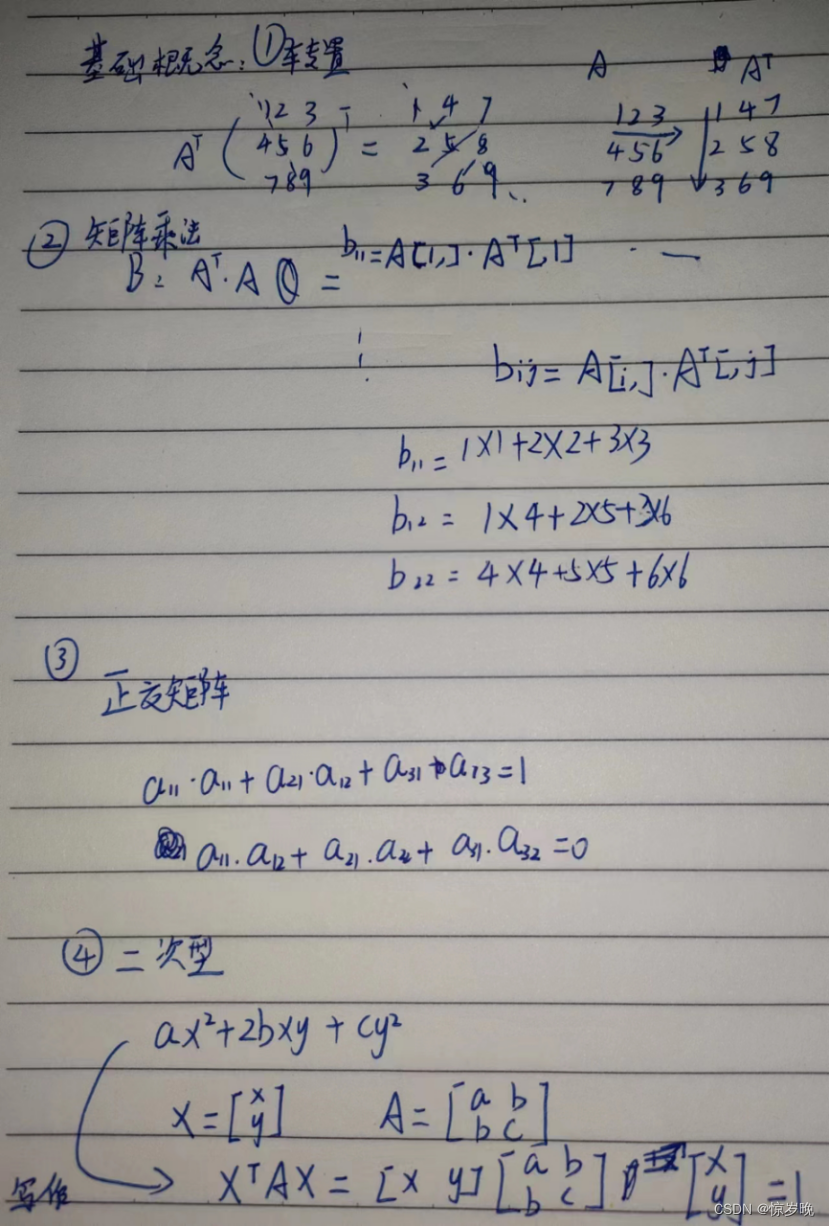 基础概念：①转置
A Aᵀ
1 2 3 ᵀ 1 4 7 1 2 3 1 4 7
Aᵀ ( 4 5 6 ) = 2 5 8 4 5 6 2 5 8
7 8 9 3 6 9 7 8 9 3 6 9
② 矩阵乘法
B = Aᵀ·A = b₁₁=A[1,]·Aᵀ[,1] · —
bij = A[i,]·Aᵀ[,j]
b₁₁ = 1×1+2×2+3×3
b₁₂ = 1×4+2×5+3×6
b₂₂ = 4×4+5×5+6×6
③
正交矩阵
a₁₁·a₁₁ + a₂₁·a₁₂ + a₃₁·a₁₃=1
a₁₁.a₁₂+ a₂₁.a₂₂+ a₃₁.a₃₂ =0
④ 二次型
ax²+2bxy + cy²
x = [x A = [a b
y] b c]
写作 XᵀAX = [x y] [a b [x =1
b c] y]
CSDN @惊岁晚